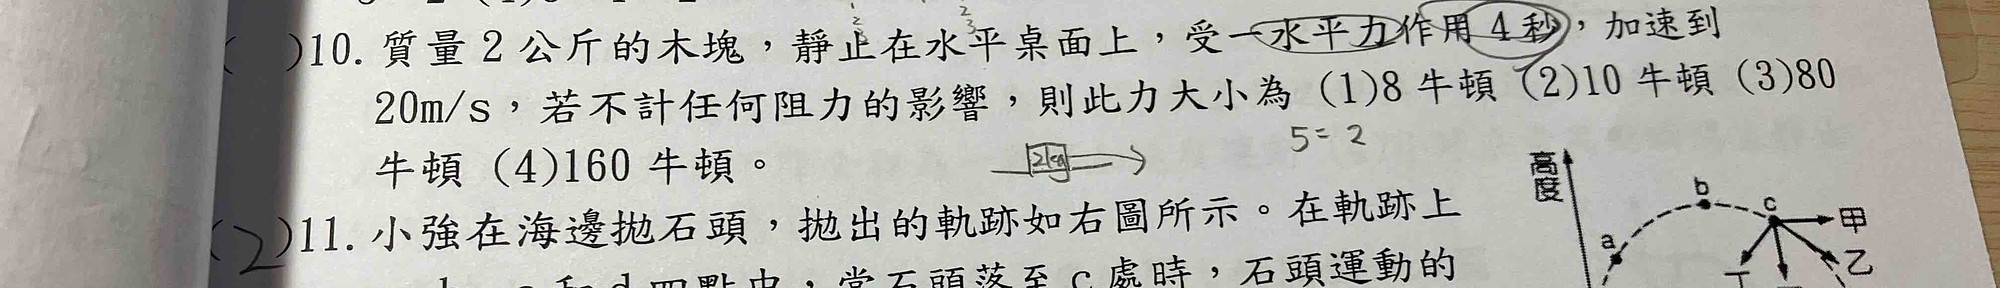 ( )10. 質量 2 公斤的木塊，靜止在水平桌面上，受一水平力作用 4 秒，加速到
20m/s，若不計任何阻力的影響，則此力大小為 (1)8 牛頓 (2)10 牛頓 (3)80
5= 2
牛頓 (4)160 牛頓。
2kg
高度
(2)11. 小強在海邊拋石頭，拋出的軌跡如右圖所示。在軌跡上
a
b
c
甲
乙
丁
四點中，當石頭落至 c 處時，石頭運動的